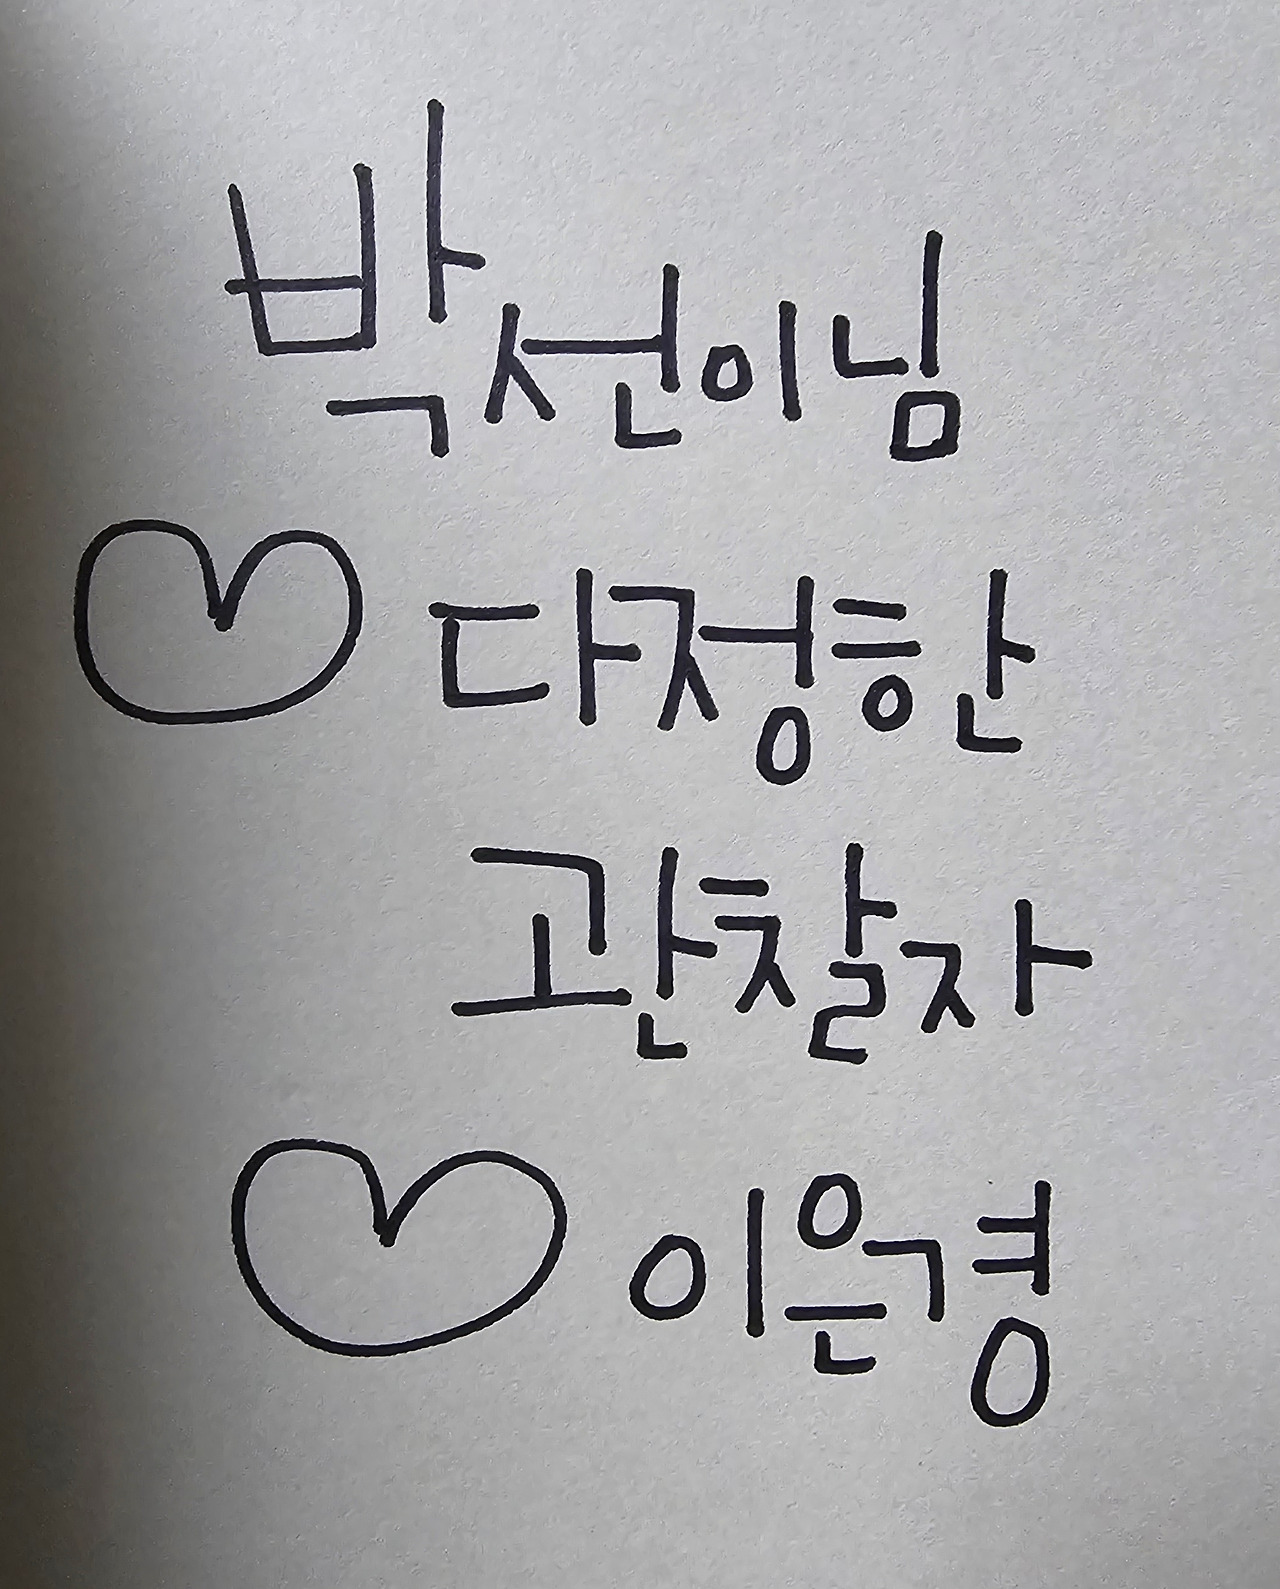 박선이님
♡ 다정한
관찰자
♡ 이은경